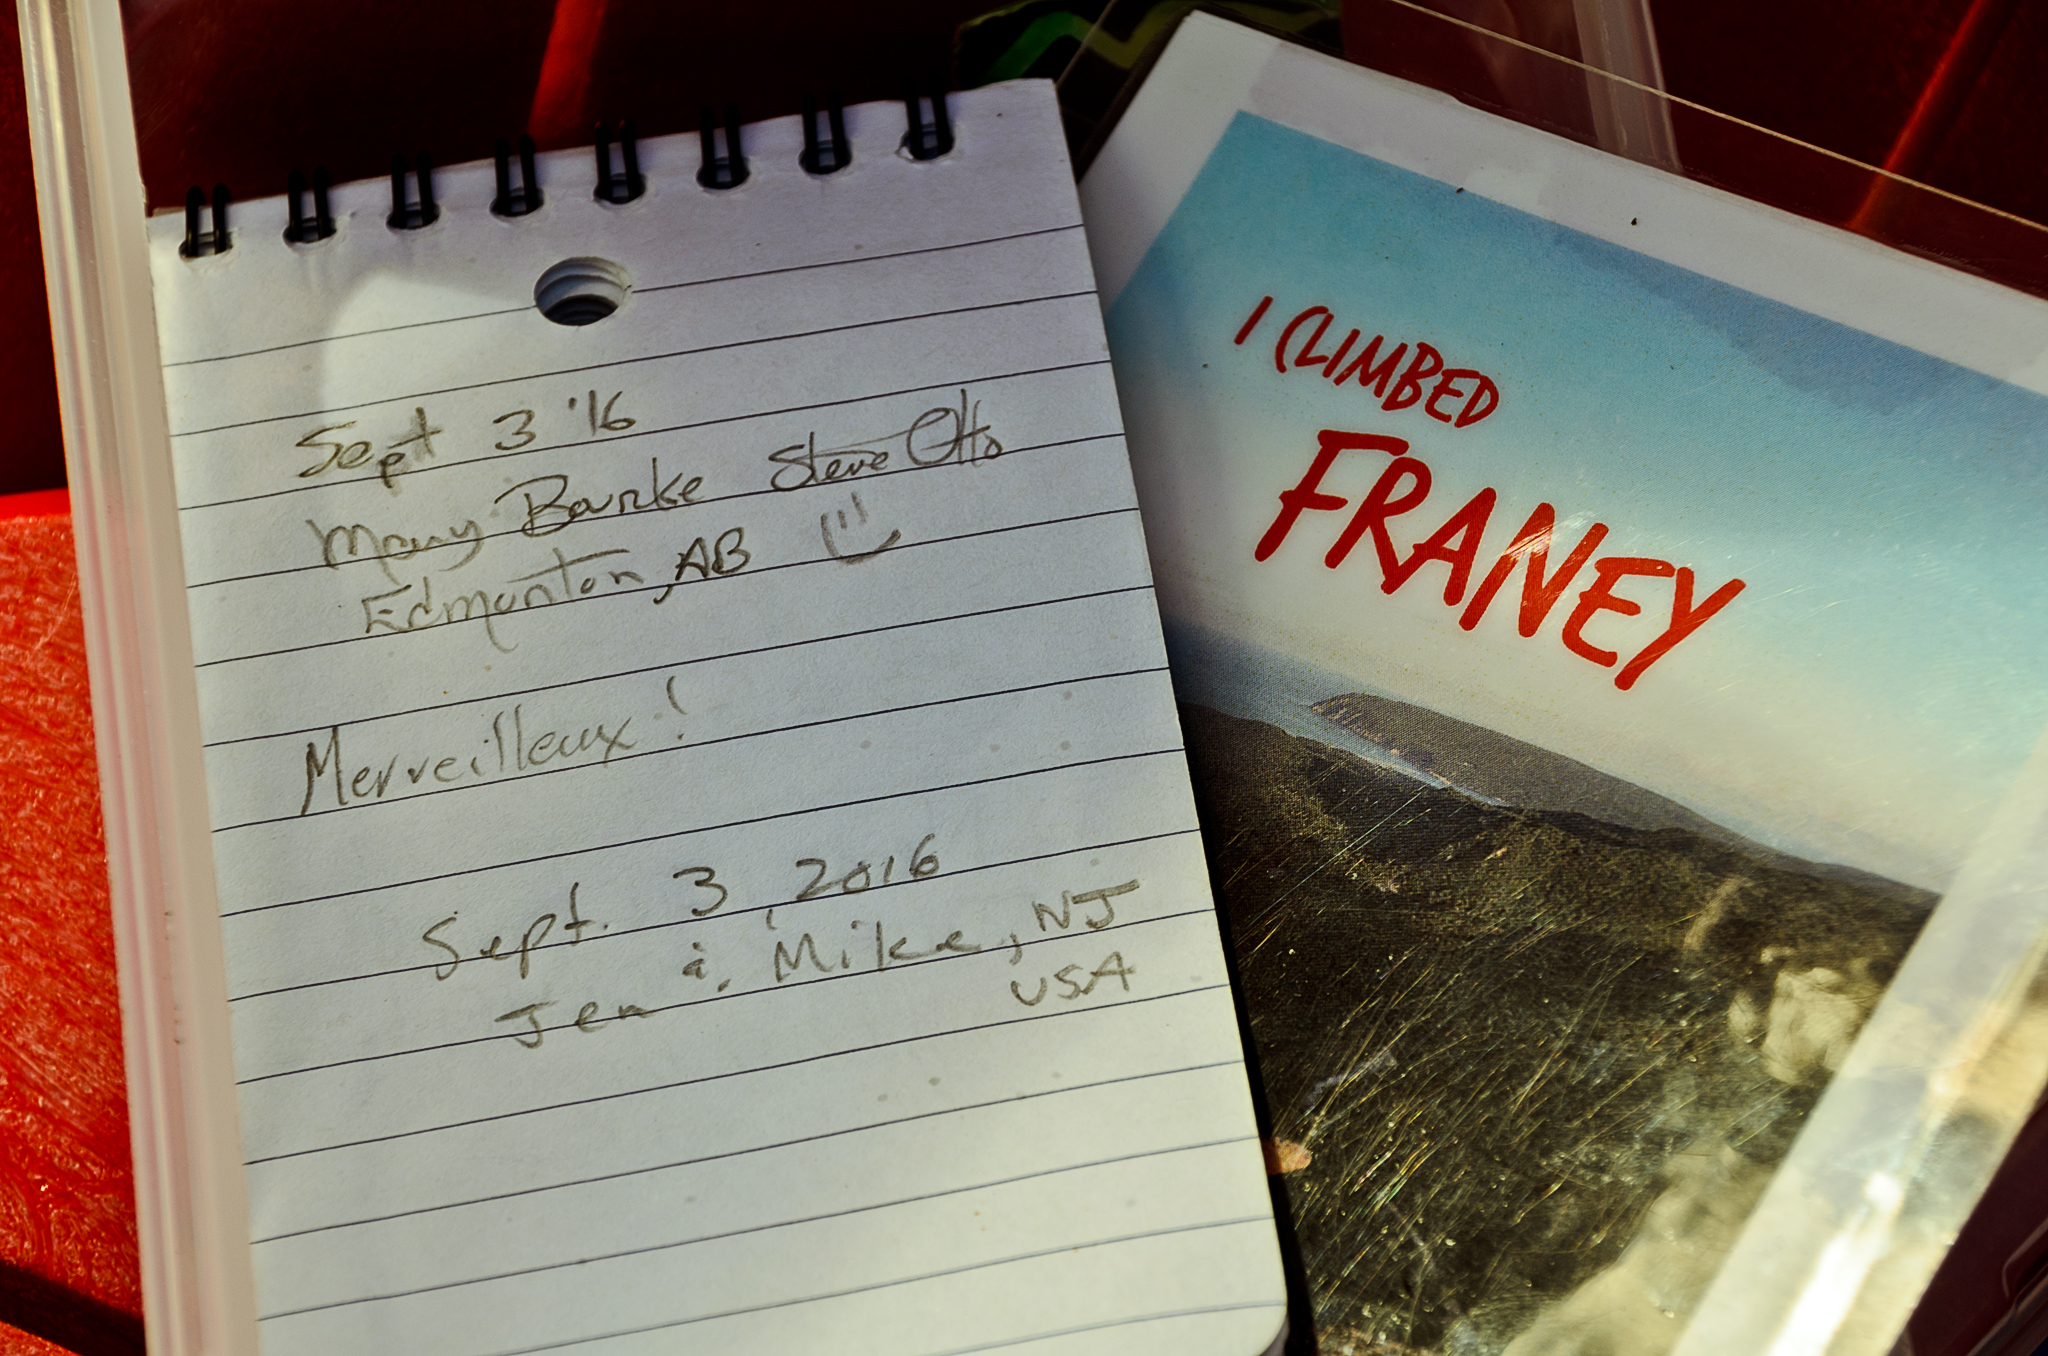 Sept 3 '16
Mary Bourke Steve Otto
Edmonton, AB
Merveilleux!
Sept. 3, 2016
Jen & Mike, NJ
USA
I CLIMBED
FRANEY